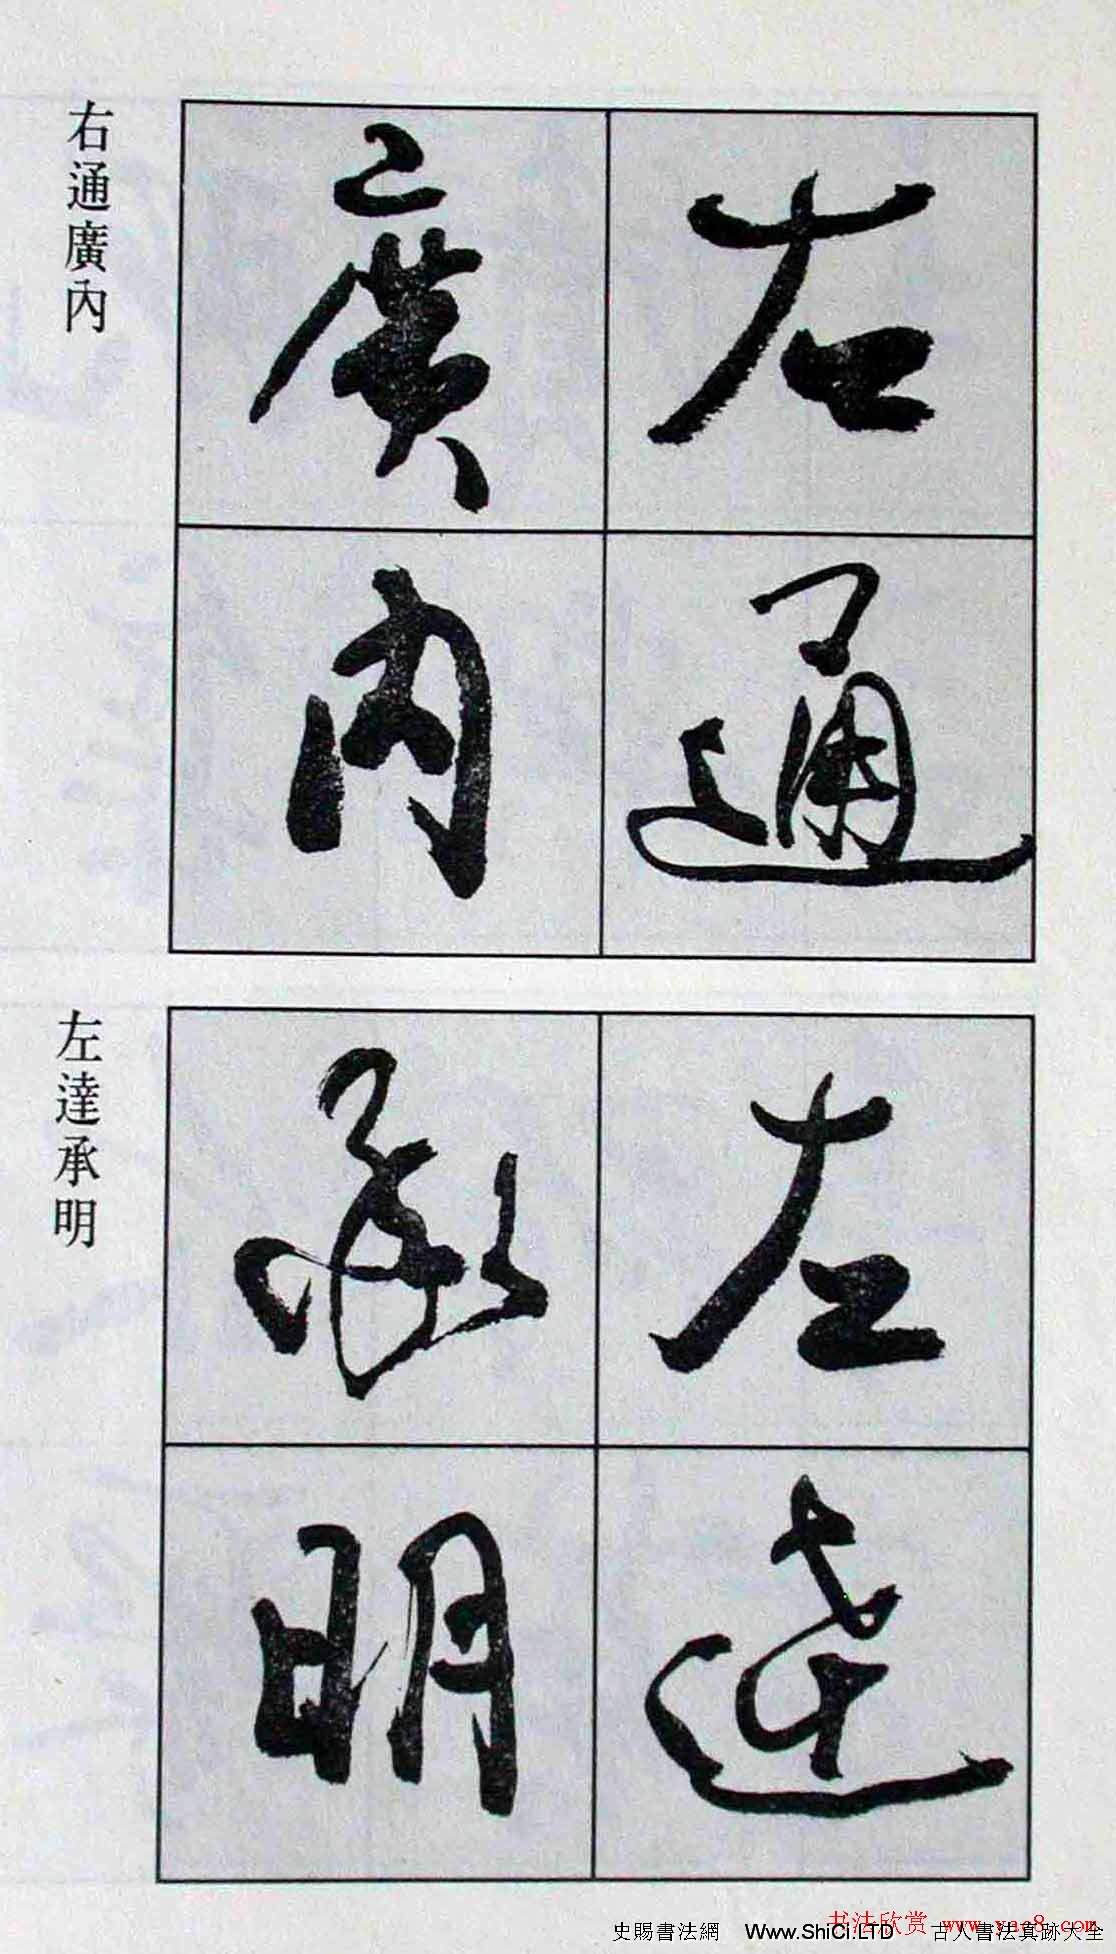 右通
廣內
右通廣內
左達
承明
左達承明
书法欣赏 www.yac8.com
史賜書法網 Www.ShiCi.LTD 古人書法真跡大全